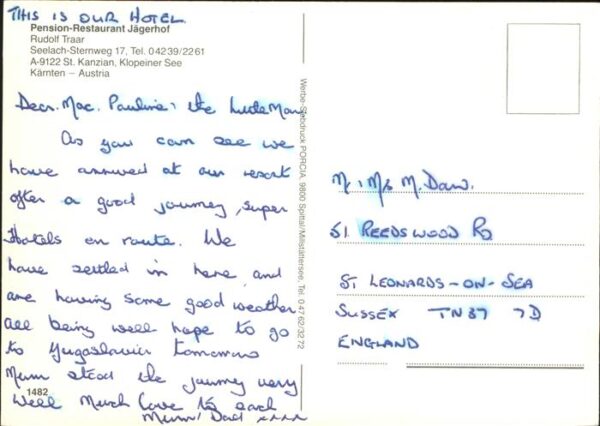 THIS IS OUR HOTEL.
Pension-Restaurant Jägerhof
Rudolf Traar
Seelach-Sternweg 17, Tel. 04239/2261
A-9122 St. Kanzian, Klopeiner See
Kärnten – Austria
Dear. Mac. Pauline, the Little Man
As you can see we
have arrived at our resort
after a good journey, super
Hotels en route. We
have settled in here, and
are having some good weather,
all being well hope to go
to Yugoslavia tomorrow
Mum stood the journey very
well Much love to each
Mum/Dad xxxx
1482
Werbe-Siebdruck PORCIA, 9800 Spittal/Millstättersee, Tel. 04762/3272
Mr, Mrs M. Daw.
51 REEDSWOOD RD
ST LEONARDS-ON-SEA
SUSSEX TN37 7D
ENGLAND